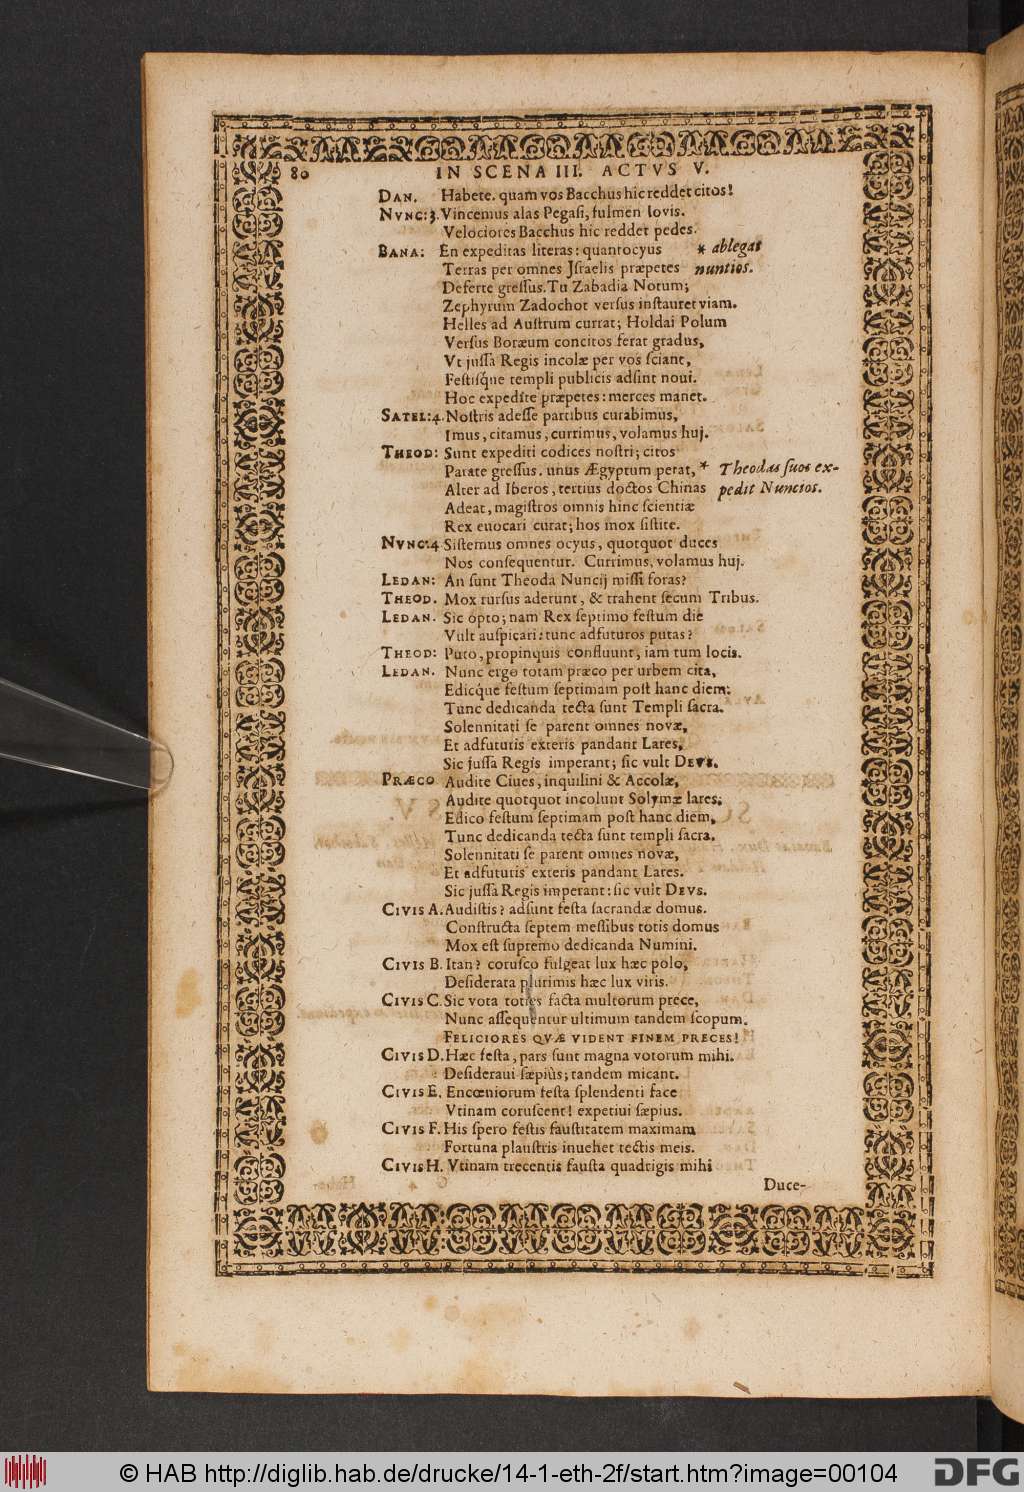 80 IN SCENA III. ACTVS V.
DAN. Habete. quam vos Bacchus hic reddet citos!
NVNC: 3. Vincemus alas Pegasi, fulmen Iovis.
Velociores Bacchus hic reddet pedes.
BANA: En expeditas literas: quantocyus * ablegat
Terras per omnes Jsraelis præpetes nuntios.
Deferte gressus. Tu Zabadia Notum;
Zephyrum Zadochot versus instauret viam.
Helles ad Austrum currat; Holdai Polum
Versus Boræum concitos ferat gradus,
Vt jussa Regis incolæ per vos sciant,
Festisq́ue templi publicis adsint novi.
Hoc expedite præpetes: merces manet.
SATEL: 4. Nostris adesse partibus curabimus,
Imus, citamus, currimus, volamus huj.
THEOD: Sunt expediti codices nostri; citos
Parate gressus. unus Ægyptum petat, * Theodas suos ex-
Alter ad Iberos, tertius doctos Chinas pedit Nunctos.
Adeat, magistros omnis hinc scientiæ
Rex euocari curat; hos mox sistite.
NVNC: 4 Sistemus omnes ocyus, quotquot duces
Nos consequentur. Currimus, volamus huj.
LEDAN: An sunt Theoda Nuncij missi foras?
THEOD. Mox rursus aderunt, & trahent secum Tribus.
LEDAN. Sic opto; nam Rex septimo festum die
Vult auspicari: tunc adfuturos putas?
THEOD: Puto, propinquis confluunt, iam tum locis.
LEDAN. Nunc ergo totam præco per urbem cita,
Edicq́ue festum septimam post hanc diem:
Tunc dedicanda tecta sunt Templi sacra.
Solennitati se parent omnes novæ,
Et adfuturis exteris pandant Lares,
Sic jussa Regis imperant; sic vult DEVS.
PRÆCO Audite Ciues, inquilini & Accolæ,
Audite quotquot incolunt Solymæ lares;
Edico festum septimam post hanc diem,
Tunc dedicanda tecta sunt templi sacra.
Solennitati se parent omnes novæ,
Et adfuturis exteris pandant Lares.
Sic jussa Regis imperant: sic vult DEVS.
CIVIS A. Audistis? adsunt festa sacrandæ domus.
Constructa septem messibus totis domus
Mox est supremo dedicanda Numini.
CIVIS B. Itan? corusco fulgeat lux hæc polo,
Desiderata plurimis hæc lux viris.
CIVIS C. Sic vota toties facta multorum prece,
Nunc assequentur ultimum tandem scopum.
FELICIORES QVÆ VIDENT FINEM PRECES!
CIVIS D. Hæc festa, pars sunt magna votorum mihi.
Desideraui sæpiùs; tandem micant.
CIVIS E. Encœniorum festa splendenti face
Vtinam coruscent! expetiui sæpius.
CIVIS F. His spero festis faustitatem maximam
Fortuna plaustris inuehet tectis meis.
CIVIS H. Vtinam trecentis fausta quadrigis mihi
Duce-
© HAB http://diglib.hab.de/drucke/14-1-eth-2f/start.htm?image=00104
DFG